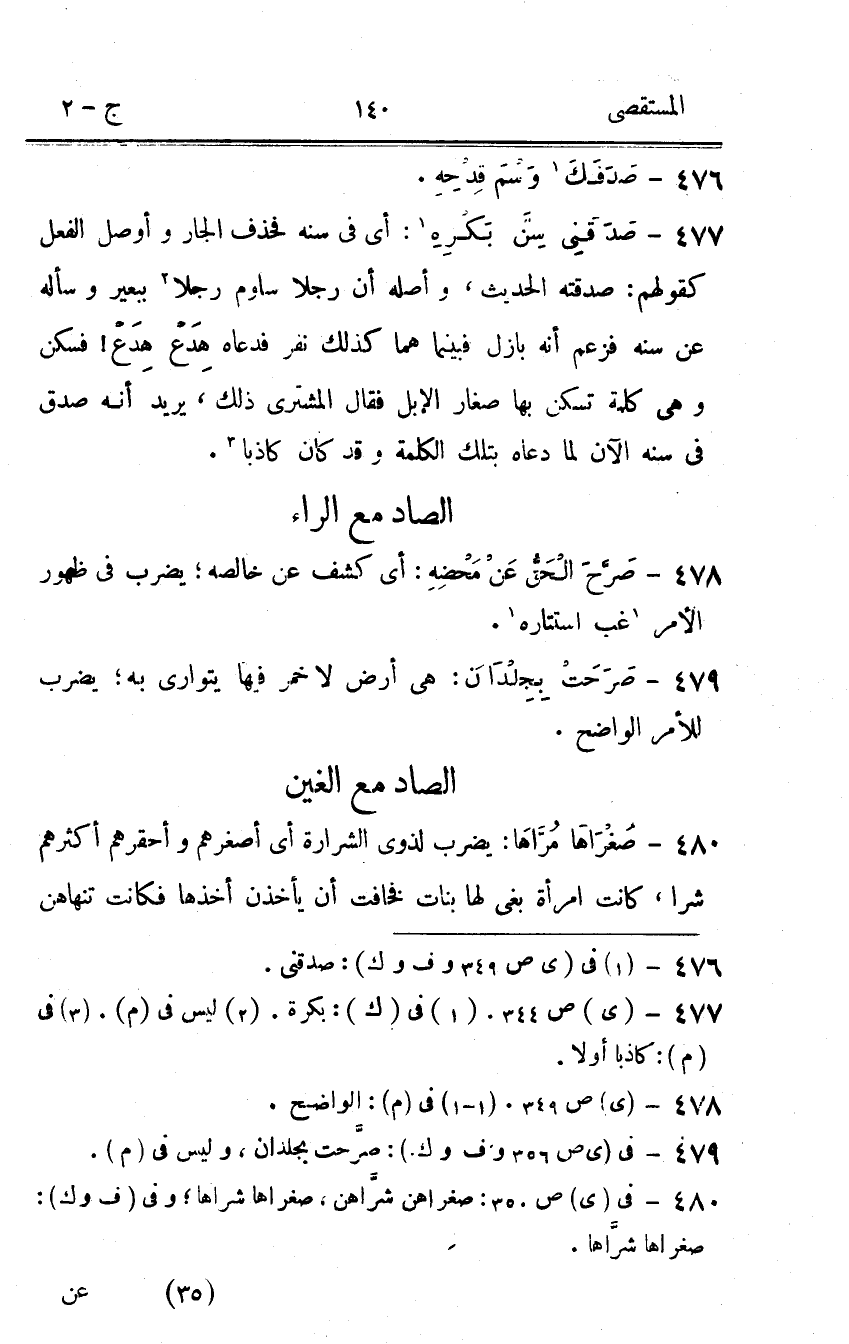 المستقصى ١٤٠ ج - ٢
٤٧٦ - صَدَقَكَ ١ وَسْمَ قِدْحِهِ .
٤٧٧ - صَدَقَنِى سِنَّ بَكْرِهِ ١ : أى فى سنه فحذف الجار و أوصل الفعل
كقولهم: صدقته الحديث ، و أصله أن رجلا ساوم رجلا ٢ ببعير و سأله
عن سنه فزعم أنه بازل فبينما هما كذلك نفر فدعاه هِدَعْ هِدَعْ! فسكن
و هى كلمة تسكن بها صغار الإبل فقال المشترى ذلك ، يريد أنه صدق
فى سنه الآن لما دعاه بتلك الكلمة و قد كان كاذبا ٣ .
الصاد مع الراء
٤٧٨ - صَرَّحَ الْحَقُّ عَنْ مَحْضِهِ : أى كشف عن خالصه ؛ يضرب فى ظهور
الأمر ١ غب استتاره ١ .
٤٧٩ - صَرَحَتْ بِجِلْدَانَ : هى أرض لا خمر فيها يتوارى به ؛ يضرب
للأمر الواضح .
الصاد مع الغين
٤٨٠ - صُغْرَاهَا مُرَّاهَا : يضرب لذوى الشرارة أى أصغرهم و أحقرهم أكثرهم
شرا ، كانت امرأة بغى لها بنات فخافت أن يأخذن أخذها فكانت تنهاهن
٤٧٦ - (١) فى (ى ص ٣٤٩ و ف و ك) : صدقنى .
٤٧٧ - (ى) ص ٣٤٤ . (١) فى (ك) : بكرة . (٢) ليس فى (م) . (٣) فى
(م) : كاذبا أولا .
٤٧٨ - (ى) ص ٣٤٩ . (١-١) فى (م) : الواضح .
٤٧٩ - فى (ى ص ٣٥٦ و ف و ك) : صرَّحت بجلدان ، و ليس فى (م) .
٤٨٠ - فى (ى) ص ٣٥٠ : صغراهن شرَّاهن ، صغراها شراها ؛ و فى (ف و ك) :
صغراها شرَّاها .
(٣٥) عن